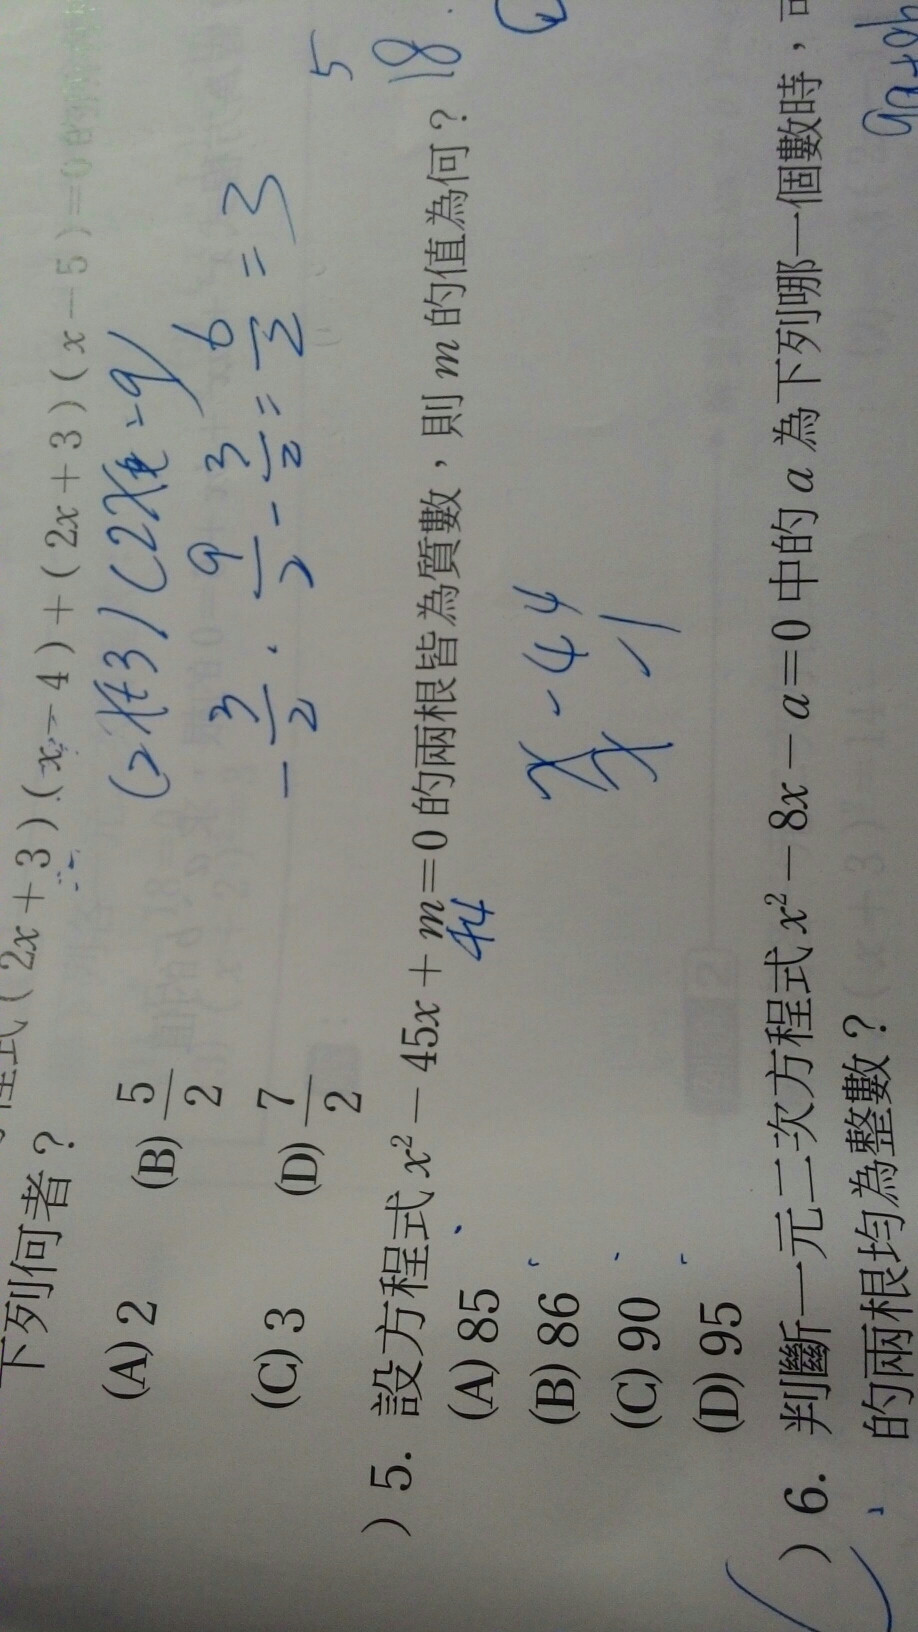 程式(2x+3)(x-4)+(2x+3)(x-5)=0的
下列何者？
(A) 2 (B) 5/2
(C) 3 (D) 7/2
(2x+3)(2x-9)
-3/2 . 9/2 - 3/2 = 6/2 = 3
5
18
) 5. 設方程式 x²-45x+m=0 的兩根皆為質數，則 m 的值為何？
44
(A) 85
(B) 86
(C) 90
(D) 95
x -44
x -1
) 6. 判斷一元二次方程式 x²-8x-a=0 中的 a 為下列哪一個數時，
的兩根均為整數？